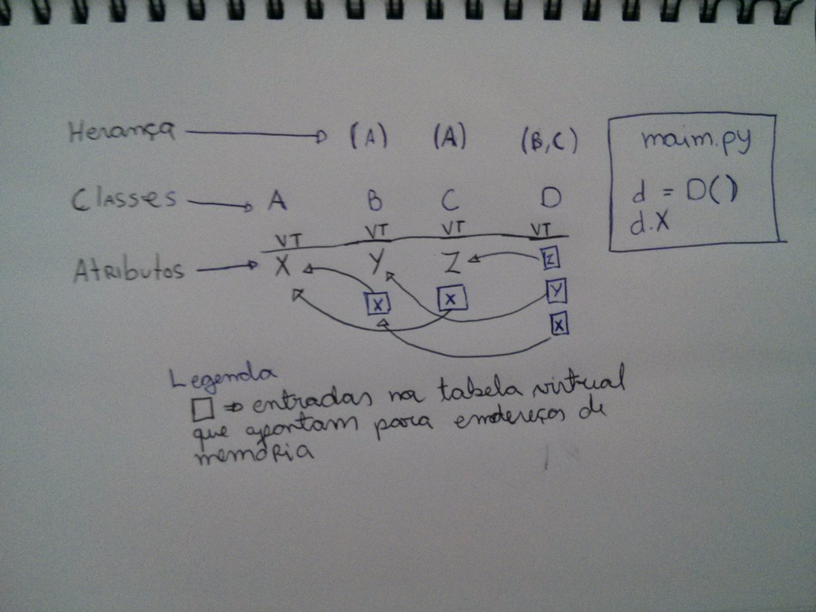 Herança (A) (A) (B,C)
Classes A B C D
VT VT VT VT
Atributos X Y Z Z
X X Y
X
maim.py
d = D()
d.X
Legenda
entradas na tabela virtual
que apontam para endereços de
memória